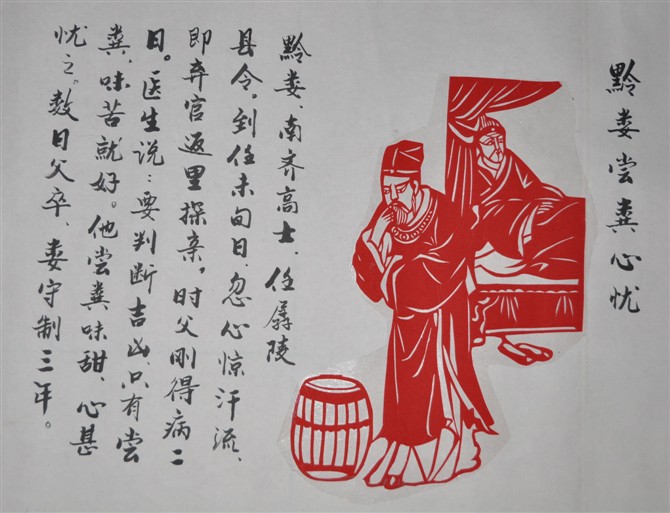 黔娄尝粪心忧
黔娄、南齐高士、任孱陵
县令。到任未旬日、忽心惊汗流、
即弃官返里探亲。时父刚得病二
日。医生说：要判断吉凶、只有尝
粪、味苦就好。他尝粪味甜、心甚
忧之。数日父卒、娄守制三年。